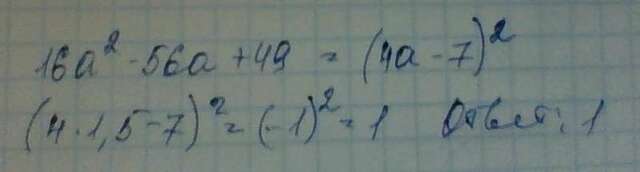 16a² - 56a + 49 = (4a - 7)²
(4 · 1,5 - 7)² = (-1)² = 1 Ответ: 1